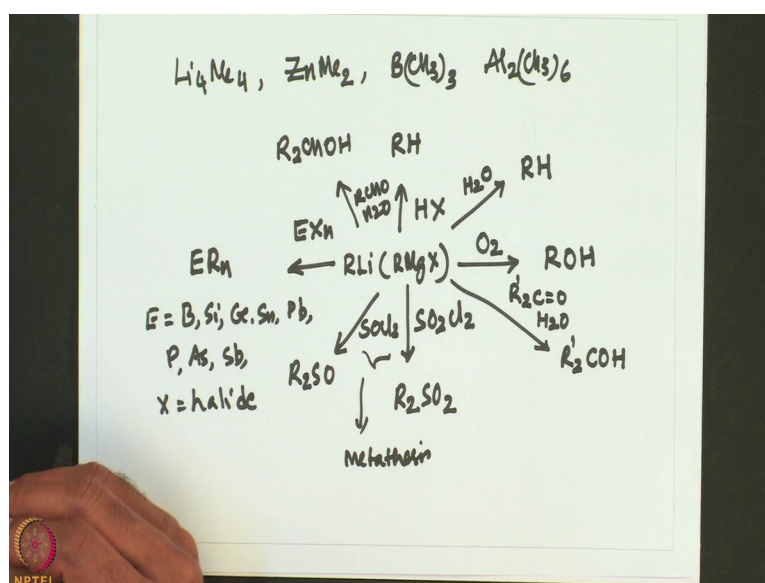 Li4Me4, ZnMe2, B(CH3)3 Al2(CH3)6
R2CHOH RH
RCHO
H2O
HX
H2O
RH
EXn
ERn
RLi (RMgX)
O2
ROH
R'2C=O
H2O
R'2COH
E = B, Si, Ge. Sn, Pb,
P, As, Sb,
X = halide
SOCl2
SO2Cl2
R2SO
R2SO2
Metathesis
NPTEL